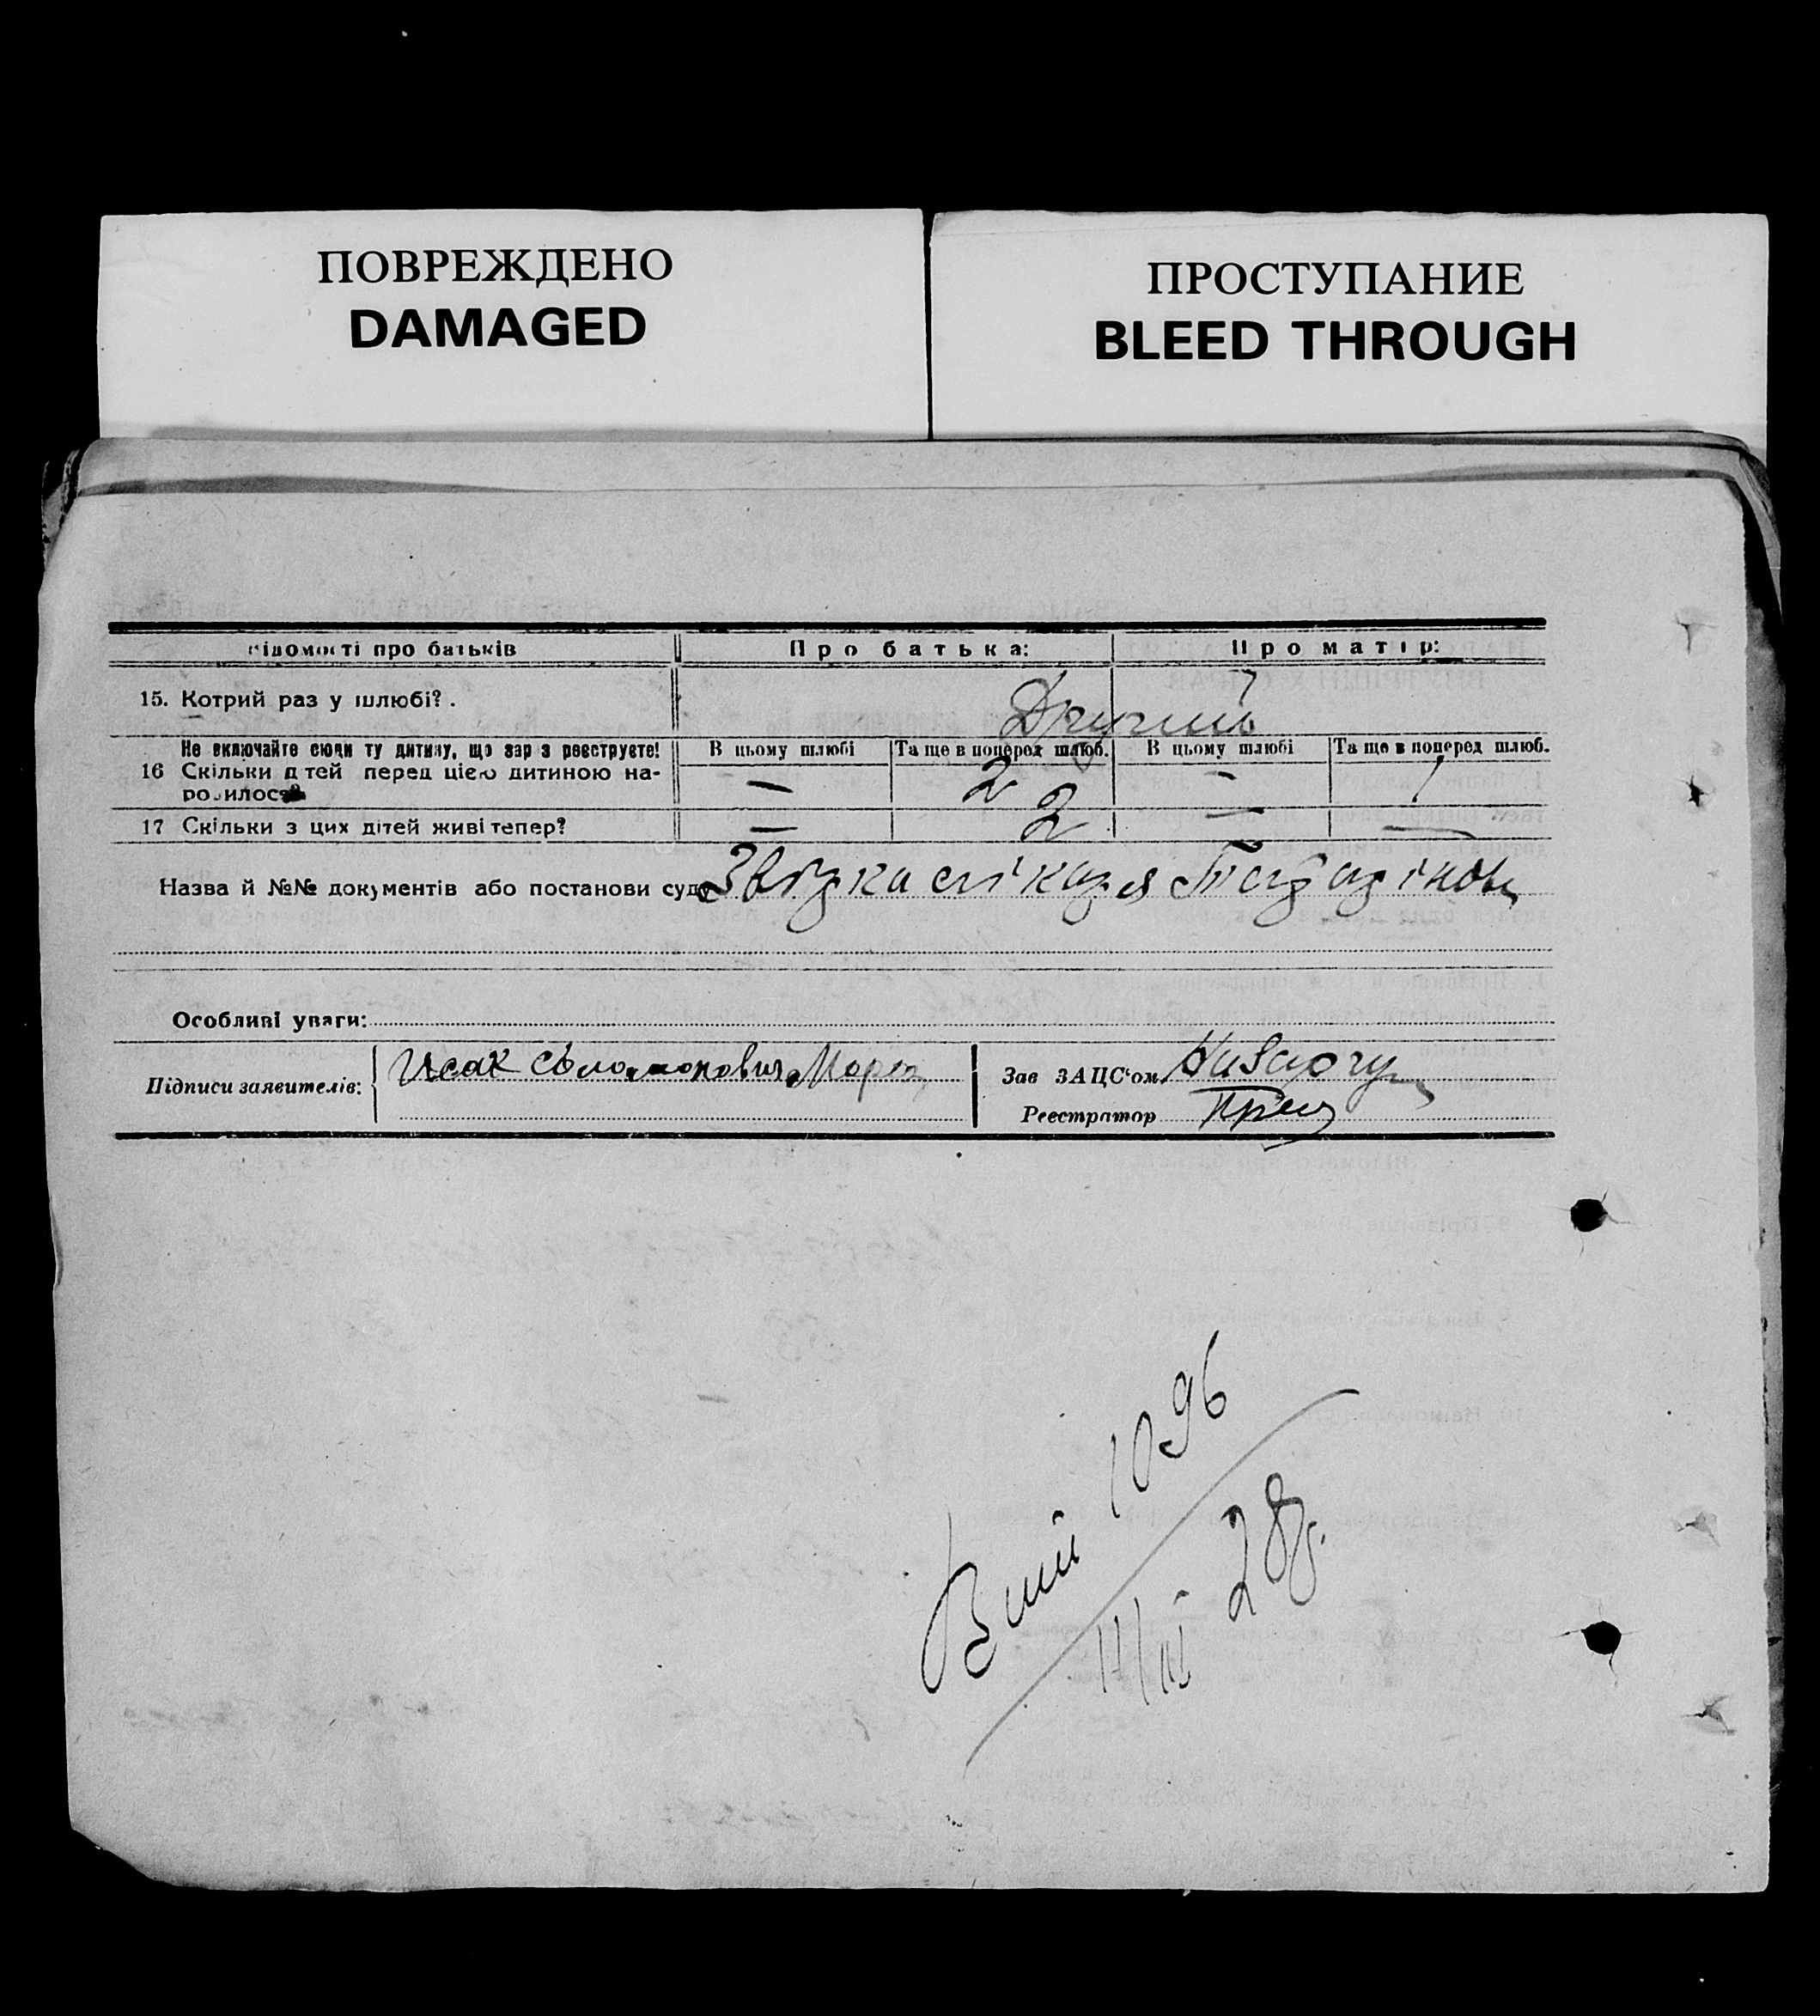 ПОВРЕЖДЕНО
DAMAGED
ПРОСТУПАНИЕ
BLEED THROUGH
відомості про батьків
Про батька:
Про матір:
15. Котрий раз у шлюбі?.
Другий
Не включайте сюди ту дитину, що зар з реєструєте!
В цьому шлюбі
Та ще в поперед шлюб.
В цьому шлюбі
Та ще в поперед шлюб.
16 Скільки д тей перед цією дитиною на-
родилося?
—
2
—
1
17 Скільки з цих дітей живі тепер?
—
2
—
—
Назва й №№ документів або постанови суду
Особливі уваги:
Підписи заявителів:
Исак Соломонович
Зав ЗАЦС'ом
Реєстратор
1096
28